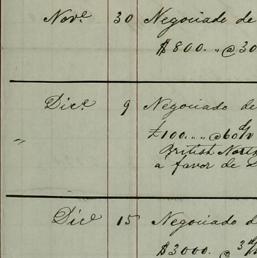 Nove 30 Negociado de
$800.. @ 30
Dice 9 Negociado de
" £100.. @ 60
British North
a favor de
Dice 15 Negociado d
$3000. @ 3